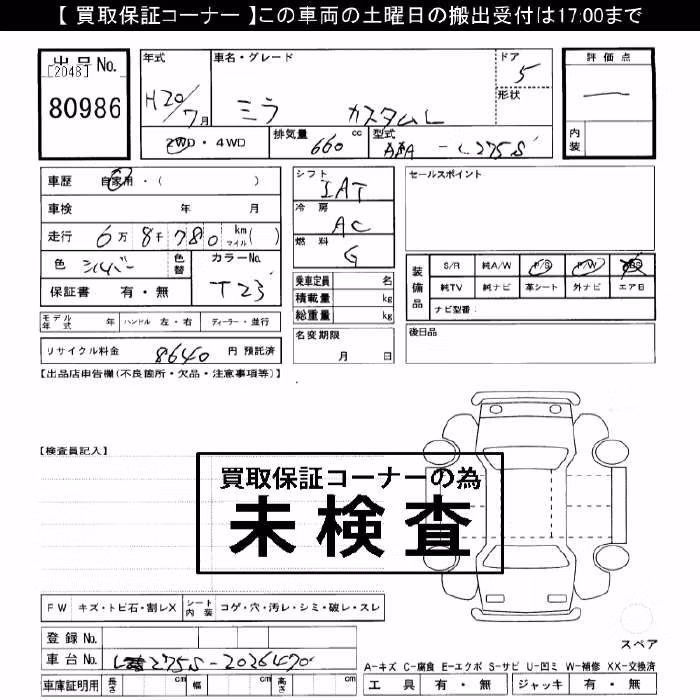 【 買取保証コーナー 】この車両の土曜日の搬出受付は17:00まで
出品No.
[2048]
80986
年式
H20/7月
車名・グレード
ミラ カスタムL
ドア
5
形状
評価点
内装
2WD・4WD
排気量 660 cc
型式 - L275S
車歴 自家用・( )
車検 年 月
走行 6万8千780 km マイル( )
色 シルバー
色替
カラーNo.
T23
保証書 有・無
シフト
IAT
冷房
AC
燃料
G
乗車定員 名
積載量 kg
総重量 kg
セールスポイント
装備品
S/R 純A/W P/S P/W ABS
純TV 純ナビ 革シート 外ナビ エアB
ナビ型番:
モデル年式 年 ハンドル 左・右 ディーラー・並行
リサイクル料金 8640 円 預託済
名変期限
月 日
後日品
【出品店申告欄(不良箇所・欠品・注意事項等)】
【検査員記入】
買取保証コーナーの為
未検査
FW キズ・トビ石・割レX シート内装 コゲ・穴・汚レ・シミ・破レ・スレ
登録No.
車台No. L275S-2026470
車庫証明用 長さ cm 幅 cm 高さ cm
スペア
A-キズ C-腐食 E-エクボ S-サビ U-凹ミ W-補修 XX-交換済
工具 有・無 ジャッキ 有・無